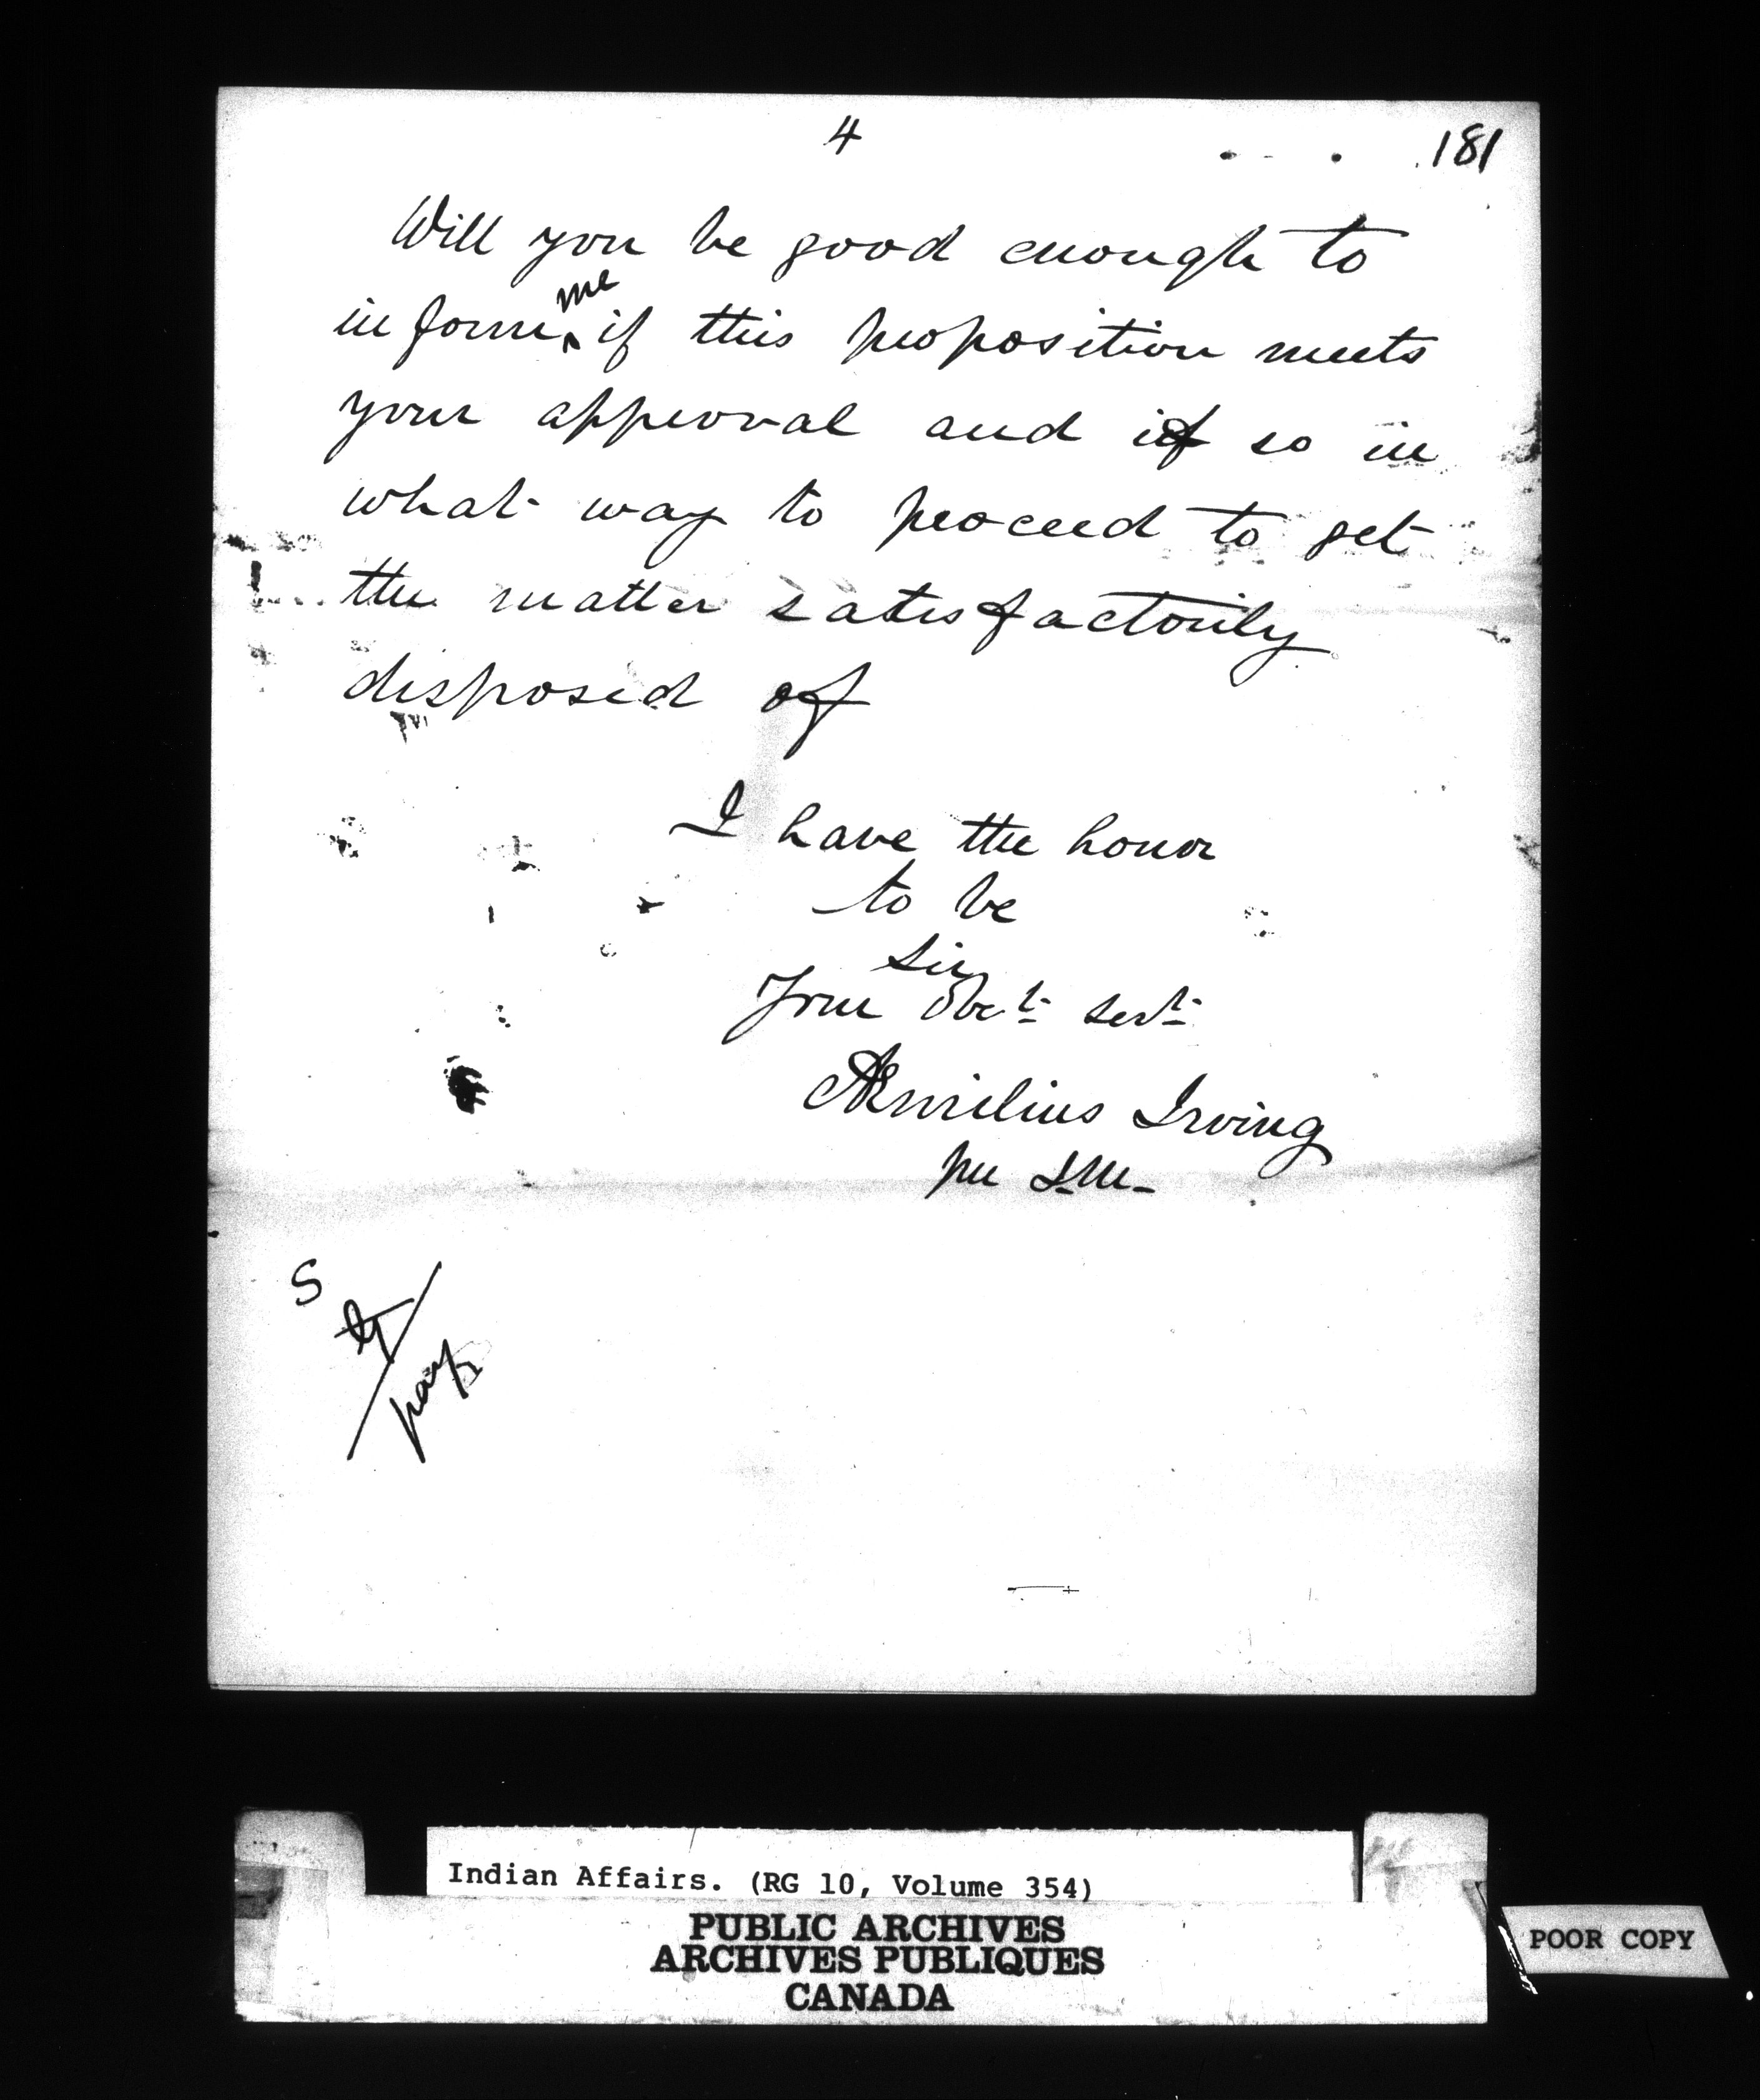 4
181
Will you be good enough to
inform me if this proposition meets
your approval and if so in
what way to proceed to get
the matter satisfactorily
disposed of
I have the honor
to be
Sir
Your Obet servt
Æmilius Irving
per
S
Indian Affairs. (RG 10, Volume 354)
PUBLIC ARCHIVES
ARCHIVES PUBLIQUES
CANADA
POOR COPY